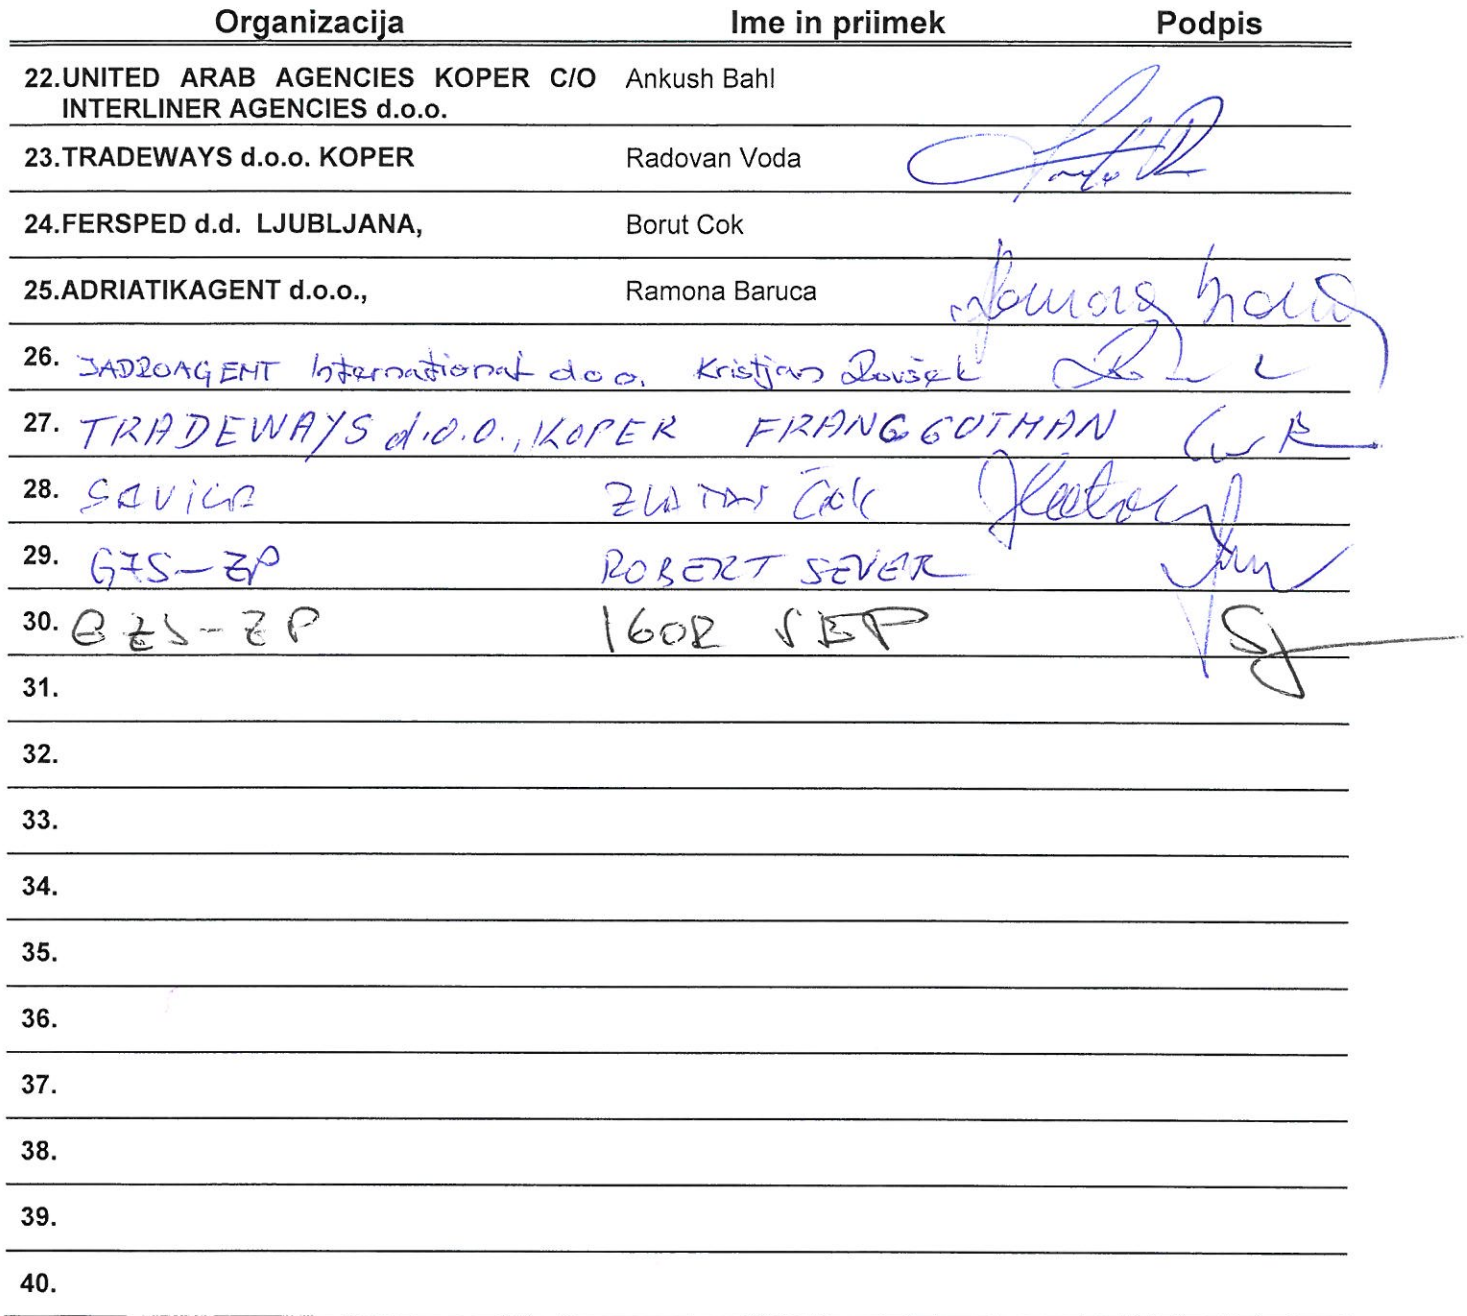 Organizacija Ime in priimek Podpis
22.UNITED ARAB AGENCIES KOPER C/O Ankush Bahl
INTERLINER AGENCIES d.o.o.
23.TRADEWAYS d.o.o. KOPER Radovan Voda
24.FERSPED d.d. LJUBLJANA, Borut Cok
25.ADRIATIKAGENT d.o.o., Ramona Baruca
26. JADROAGENT International d.o.o. Kristjan
27. TRADEWAYS d.o.o., KOPER FRANC GOTMAN
28. ČOK
29. GZS-ZP ROBERT SEVER
30. GZS-ZP IGOR SEP
31.
32.
33.
34.
35.
36.
37.
38.
39.
40.